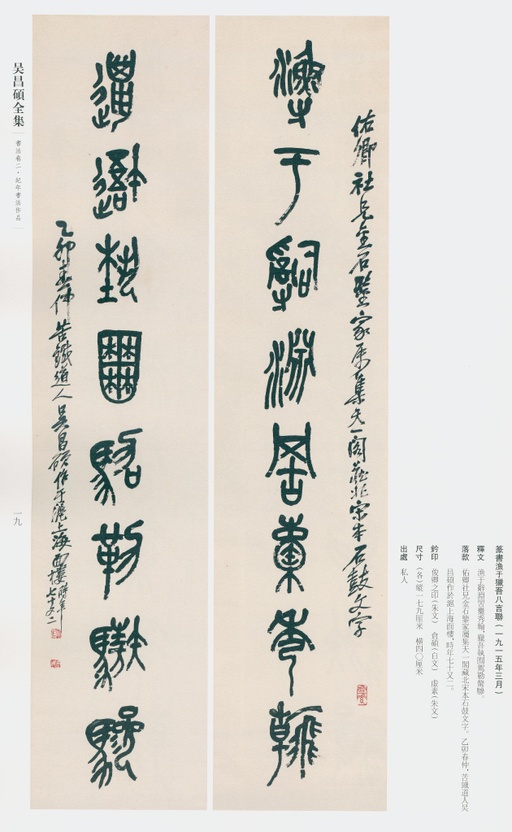 篆書漁于獵吾八言聯(一九一五年三月)
釋文 漁于辭淵罟橐秀翰，獵吾執囿駕勒
落款 佑卿社兄金石鑒家屬集天一閣藏北宋本石鼓文字。乙卯春仲，苦鐵道人吳
昌碩作於滬上海西樓，時年七十又二。
鈐印 俊卿之印(朱文) 倉碩(白文) 虛素(朱文)
尺寸 (各)縱一七九厘米 橫四〇厘米
出處 私人
佑卿社兄金石鑒家屬集天一閣藏北宋本石鼓文字
漁于辭淵罟橐秀翰
執囿勒
乙卯春仲苦鐵道人吳昌碩作于滬上海西樓時年七十又二
吴昌碩全集
書法卷二·紀年書法作品
一九